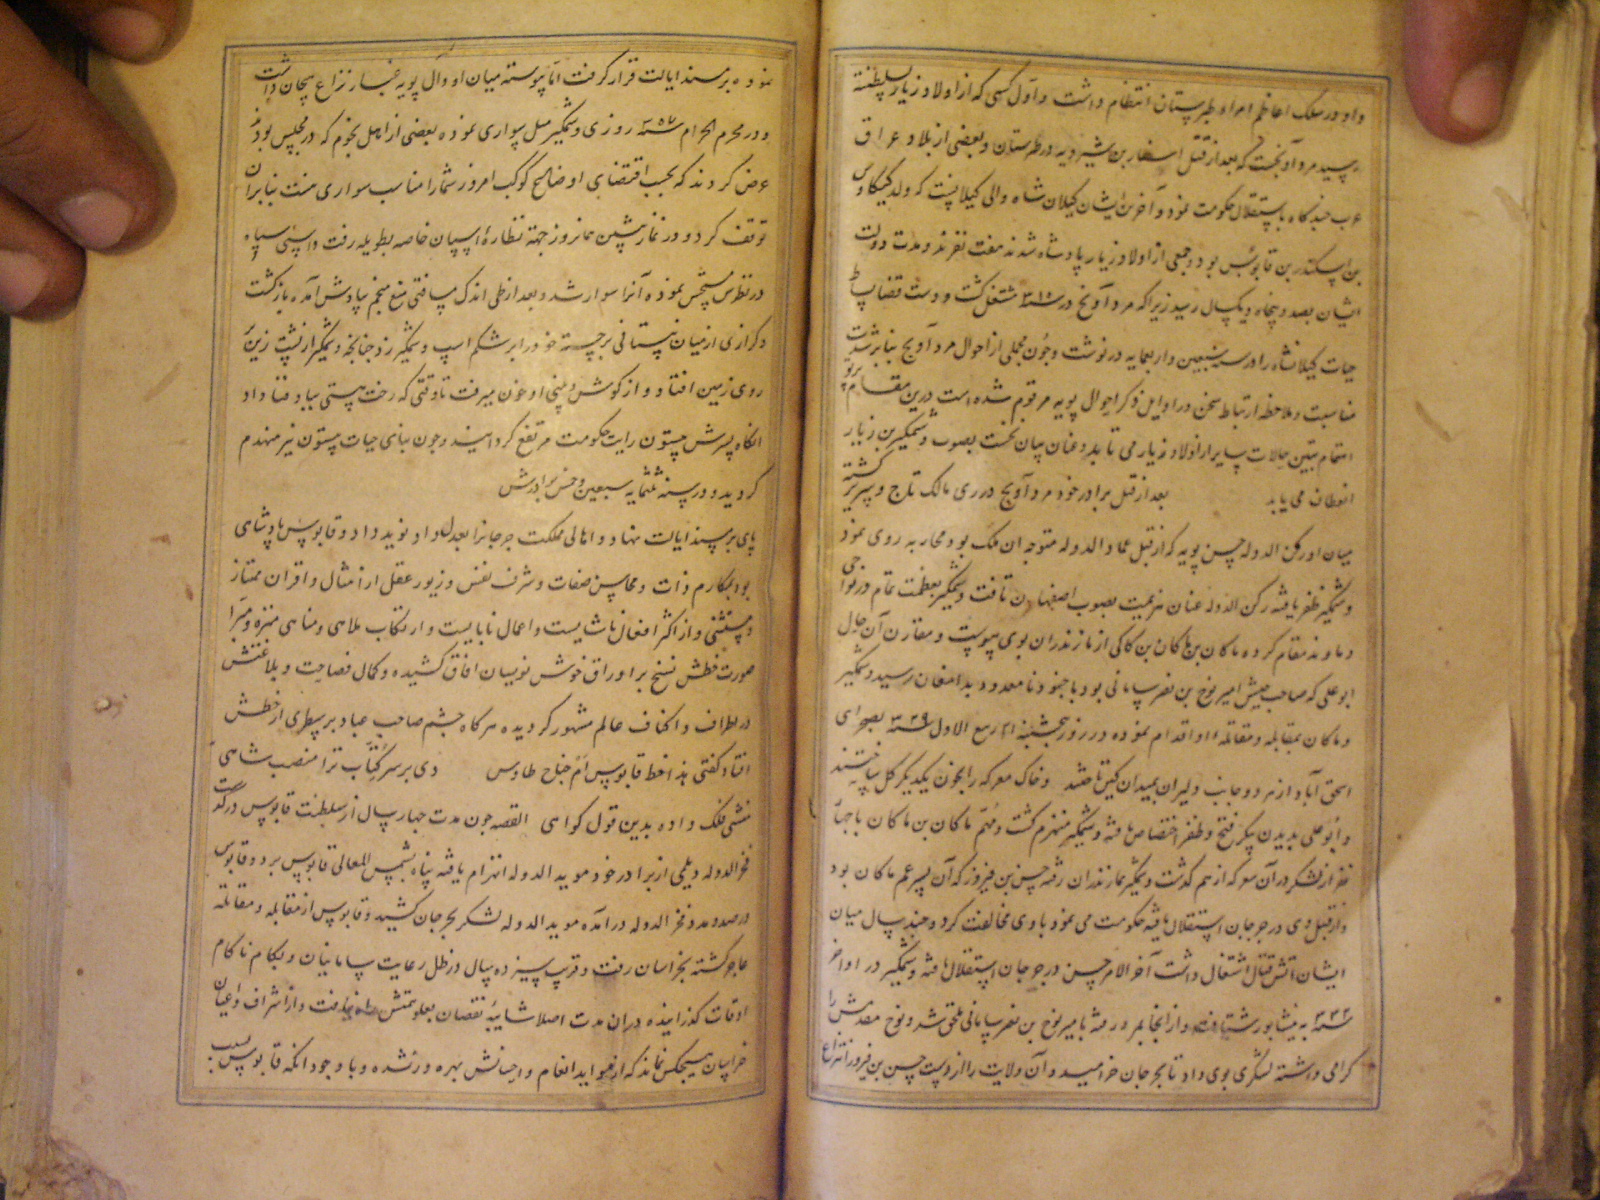 داو در سلک اعاظم امراء طبرستان انتظام داشت و اول کسی که از اولاد زیار بسلطنة
رسید مرداویج است که بعد از قتل اسفار بن شیرویه در طبرستان و بعضی از بلاد عراق
عرب چندگاه باستقلال حکومت نمود و آخرین ایشان کیلان شاه والی کیلانست که ولد کیکاوس
بن اسکندر بن قابوس بود و جمعی از اولاد زیار پادشاه شدند هفت نفرند و مدت دولت
ایشان بصد و پنجاه و یکسال رسید زیرا که مرداویج در ۳۱۵ مشتغل کشت و دست قضا بساط
حیات کیلانشاه را در سنه سبعین و اربعمایه در نوشت و چون مجملی از احوال مرداویج بنابر شدت
مناسبت و ملاحظه ارتباط سخن در اوایل ذکر احوال بویه مرقوم شده است درین مقام پرتو
اهتمام بتبین حالات سایر از اولاد زیار می تابد و عنان بیان نخست بصوب وشمکیر بن زیار
انعطاف می یابد بعد از قتل برادر خود مرداویج در ری مالک تاج و سریر کشته
میان او و رکن الدوله حسن بویه که از قبل عماد الدوله متوجه ان ملک بود محاربه روی نمود
وشمکیر ظفر یافته رکن الدوله عنان هزیمت بصوب اصفهان تافت و وشمکیر بعظمت تمام در نواحی
دماوند مقام کرده ماکان بن کاکی از مازندران بوی پیوست و مقارن آن حال
ابو علی که صاحب جیش امیر نوح بن نصر سامانی بود با جنود نامعدود بدامغان رسید وشمکیر
و ماکان بمقابله و مقاتله او اقدام نموده در روز پنجشنبه ۲۱ ربیع الاول سنه ۳۲۹ بصحرای
اسحق آباد از هر دو جانب دلیران بمیدان کین تاختند و خاک معرکه را بخون یکدیکر کل ساختند
و ابو علی بدیدن پیکر فتح و ظفر اختصاص یافته وشمکیر منهزم کشت و مهم ماکان بن ماکان با جمعی
نفر از لشکر در آن معرکه از هم کذشت وشمکیر بمازندران رفته حسن بن فیروز که آن پسر عم ماکان بود
و از قبل وی در جرجان استقلال یافته حکومت می نمود با وی مخالفت کرد و چند سال میان
ایشان آتش قتال اشتعال داشت آخر الامر حسن در جرجان استقلال یافته و وشمکیر در اواخر
سنه ۳۳۲ به نیشابور شتافت و از آنجا بمرو رفته بامیر نوح بن نصر سامانی ملحق شد و نوح مقدمش را
کرامی داشته لشکری بوی داد تا بجرجان خرامید و آن ولایت را از دست حسن بن فیروز انتزاع
نموده بر مسند ایالت قرار کرفت اما پیوسته میان او و آل بویه غبار نزاع هیجان داشت
و در محرم الحرام سنه ۳۵۷ روزی وشمکیر میل سواری نموده بعضی از اهل نجوم که در مجلس بودند
عرض کردند که بحسب اقتضای اوضاع کوکب امروز شما را مناسب سواری نیست بنابران
توقف کرد و در نماز پشین همانروز جهة نظاره اسپان خاصه بطویله رفت و اسپی سیاه
در نظرش مستحسن نموده آنرا سوار شد و بعد از طی اندک مسافتی منع منجم بیادش آمده بازکشت
و کرازی از میان نیستانی برجسته خود را بر شکم اسپ وشمکیر زد چنانچه وشمکیر از پشت زین
روی زمین افتاد و از کوش و بینی او خون میرفت تا وقتی که رخت هستی بباد فنا داد
انکاه پسرش بیستون رایت حکومت مرتفع کردانید و چون بنای حیات بیستون نیز منهدم
کردید و در سنه ثلثمایه سبعین و خمس برادرش
پای بر مسند ایالت نهاد و اهالی مملکت جرجانرا بعدل و داد نوید داد و قابوس پادشاهی
بود بمکارم ذات و محاسن صفات و شرف نفس و زیور عقل از امثال و اقران ممتاز
و مستثنی و از اکثر افعال ناشایست و اعمال نابایست و ارتکاب ملاهی و مناهی منزه و مبرا
صورت خطش نسخ بر اوراق خوش نویسان افاق کشیده و کمال فصاحت و بلاغتش
در اطراف و اکناف عالم مشهور کردیده هر کاه چشم صاحب عباد بر سطری از خطش
افتاد کفتی هذا خط قابوس ام جناح طاوس وی بر سر کتاب ترا منصب شاهی
منشی فلک داده بدین قول کواهی القصه چون مدت چهار سال از سلطنت قابوس درکذشت
فخر الدوله دیلمی از برادر خود موید الدوله انهزام یافته پناه بشمس المعالی قابوس برد و قابوس
در صدد مدد فخر الدوله درآمده موید الدوله لشکر بجرجان کشید و قابوس از مقابله و مقاتله
عاجز کشته بخراسان رفت و قریب سیزده سال در ظل رعایت سامانیان و بکام ناکام
اوقات کذرانیده در ان مدت اصلا شایبه نقصان بعلو همتش راه نیافت و از اشراف و اعیان
خراسان هیچکس نماند که از عواید انعام و احسانش بهره ور نشده و با وجود انکه قابوس بسبب